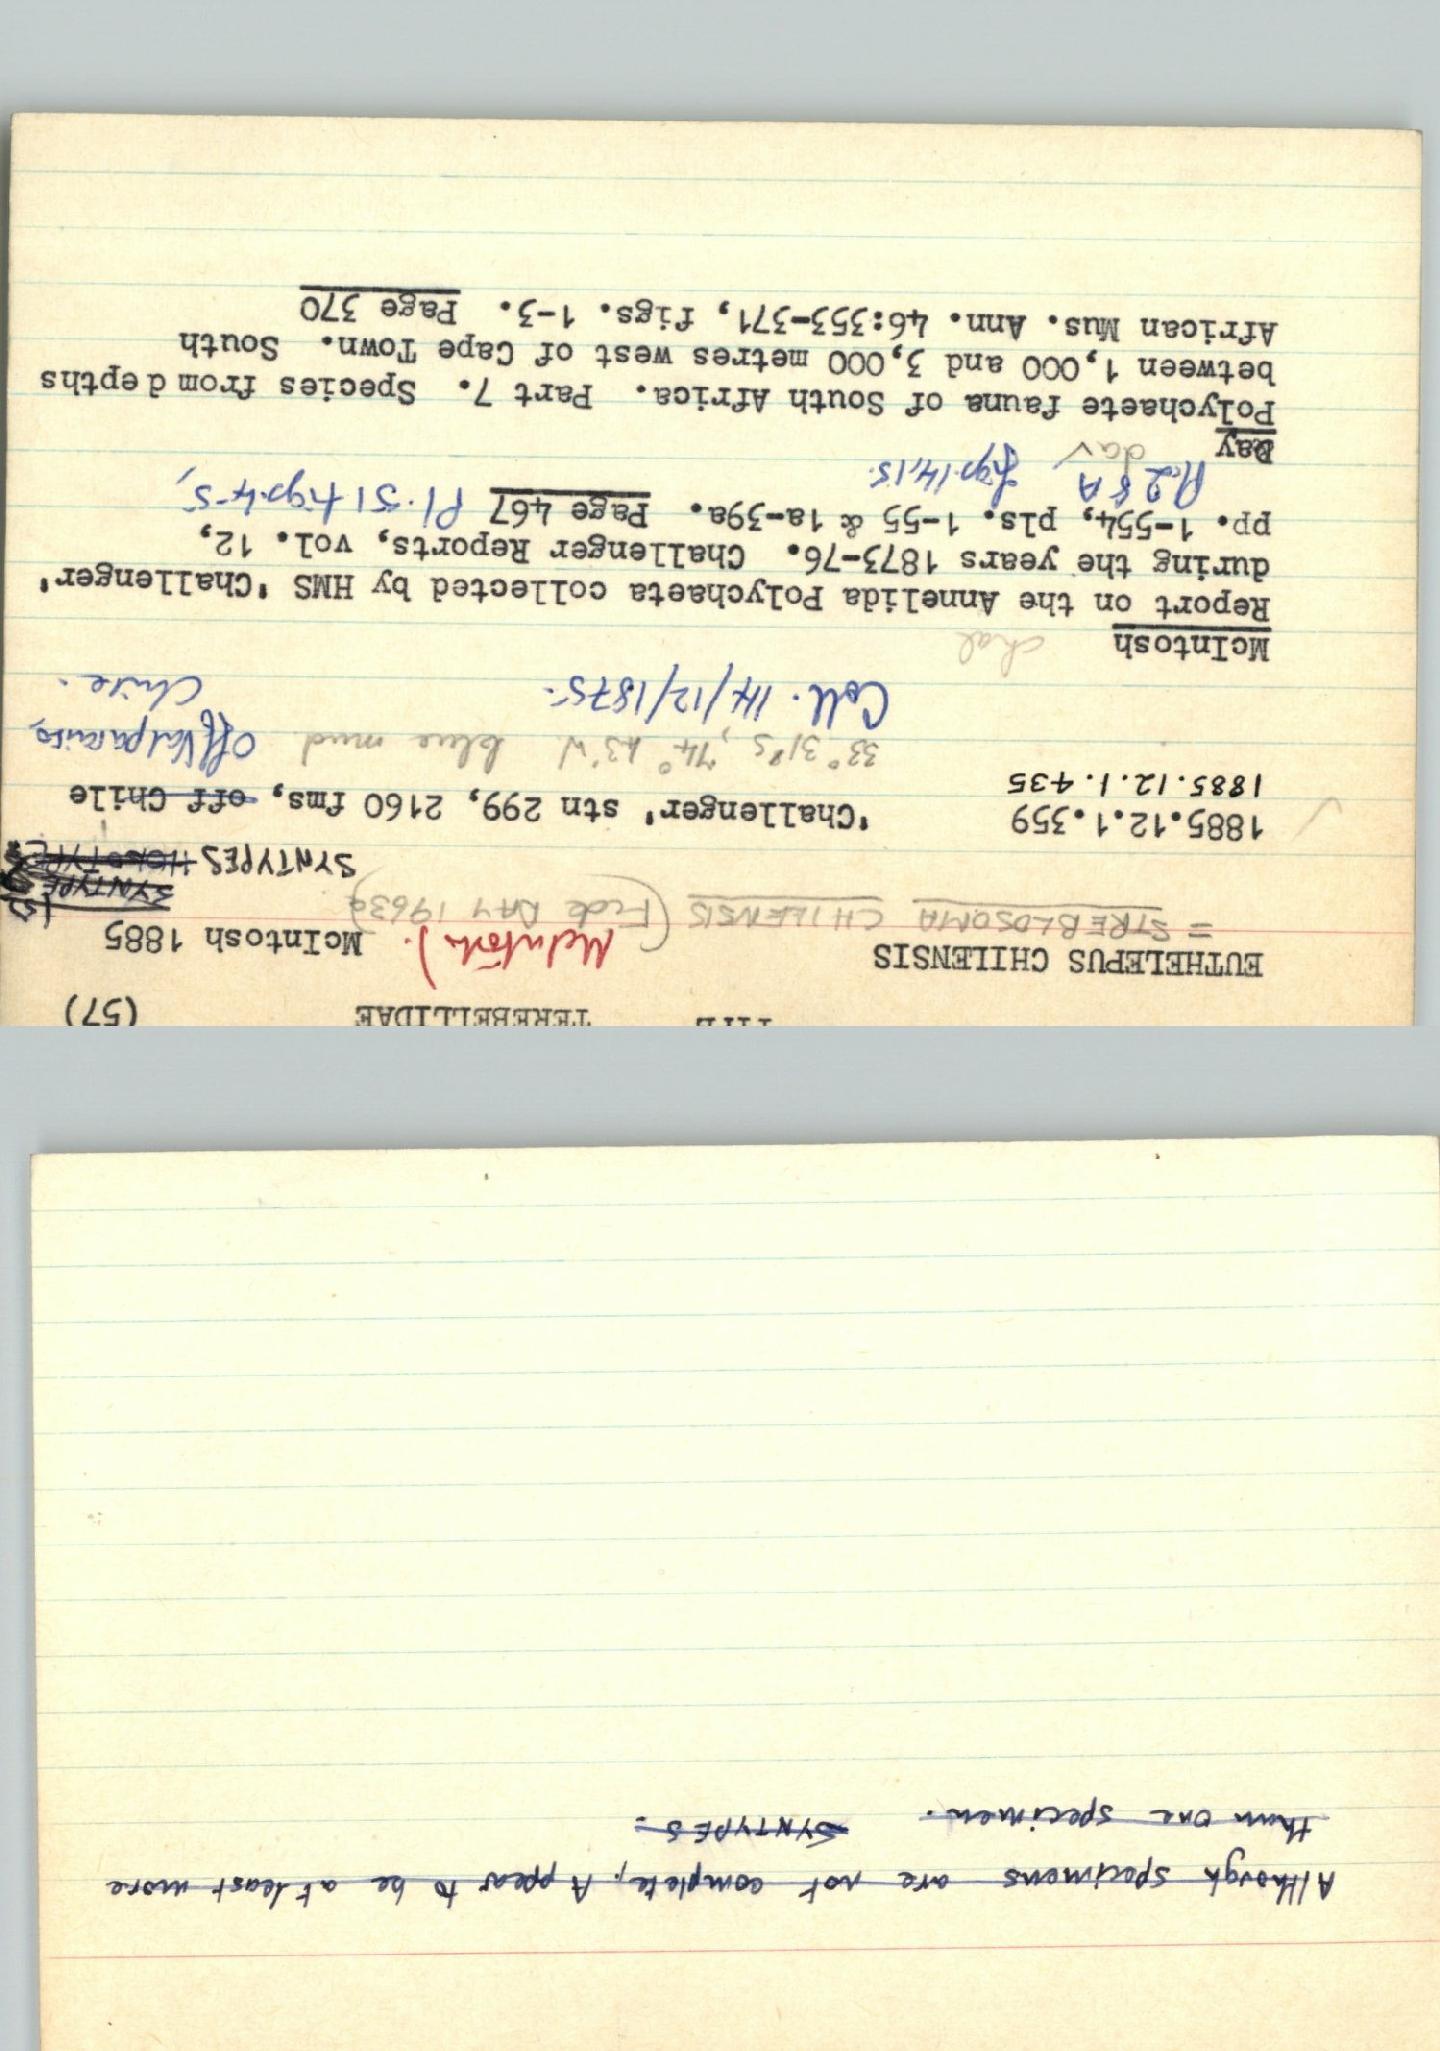 TEREBELLIDAE (57)
EUTHELEPUS CHILENSIS McIntosh). McIntosh 1885
= STREBLOSOMA CHILENSIS (Fide DAY 1963a) SYNTYPE
SYNTYPES HOLOTYPE
1885.12.1.359 'Challenger' stn 299, 2160 fms, off Chile
1885.12.1.435 33° 31'S, 74° 43'W blue mud Off Valparaiso,
Chile.
Coll. 14/12/1875.
McIntosh chal
Report on the Annelida Polychaeta collected by HMS 'Challenger'
during the years 1873-76. Challenger Reports, vol. 12,
pp. 1-554, pls. 1-55 & 1a-39a. Page 467 Pl. 51 figs. 4-5,
Pl. 28A figs. 14, 15.
Day dav
Polychaete fauna of South Africa. Part 7. Species from depths
between 1,000 and 3,000 metres west of Cape Town. South
African Mus. Ann. 46:353-371, figs. 1-3. Page 370
Although specimens are not complete, Appear to be at least more
than one specimen. SYNTYPES.